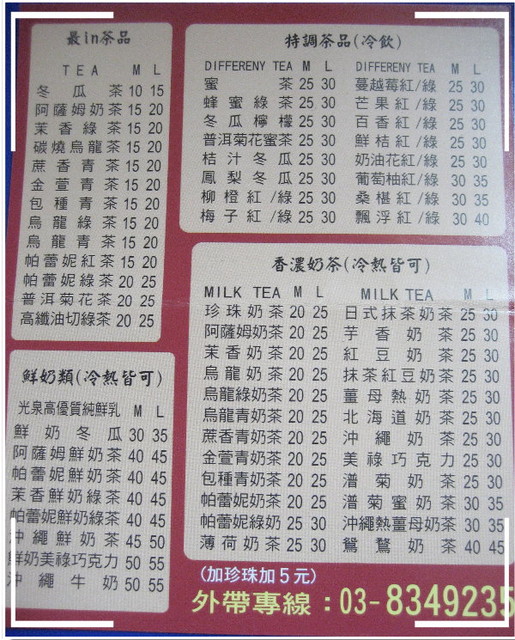 最in茶品
TEA M L
冬瓜茶 10 15
阿薩姆奶茶 15 20
茉香綠茶 15 20
碳燒烏龍茶 15 20
蔗香青茶 15 20
金萱青茶 15 20
包種青茶 15 20
烏龍綠茶 15 20
烏龍青茶 15 20
帕蕾妮紅茶 15 20
帕蕾妮綠茶 20 25
普洱菊花茶 20 25
高纖油切綠茶 20 25
鮮奶類(冷熱皆可)
光泉高優質純鮮乳 M L
鮮奶冬瓜 30 35
阿薩姆鮮奶茶 40 45
帕蕾妮鮮奶茶 40 45
茉香鮮奶綠茶 40 45
帕蕾妮鮮奶綠茶 40 45
沖繩鮮奶茶 45 50
鮮奶美祿巧克力 50 55
沖繩牛奶 50 55
特調茶品(冷飲)
DIFFERENY TEA M L
蜜茶 25 30
蜂蜜綠茶 25 30
冬瓜檸檬 25 30
普洱菊花蜜茶 25 30
桔汁冬瓜 25 30
鳳梨冬瓜 25 30
柳橙紅/綠 25 30
梅子紅/綠 25 30
DIFFERENY TEA M L
蔓越莓紅/綠 25 30
芒果紅/綠 25 30
百香紅/綠 25 30
鮮桔紅/綠 25 30
奶油花紅/綠 25 30
葡萄柚紅/綠 30 35
桑椹紅/綠 30 35
飄浮紅/綠 30 40
香濃奶茶(冷熱皆可)
MILK TEA M L
珍珠奶茶 20 25
阿薩姆奶茶 20 25
茉香奶茶 20 25
烏龍奶茶 20 25
烏龍綠奶茶 20 25
烏龍青奶茶 20 25
蔗香青奶茶 20 25
金萱青奶茶 20 25
包種青奶茶 20 25
帕蕾妮奶茶 20 25
帕蕾妮綠奶茶 25 30
薄荷奶茶 25 30
MILK TEA M L
日式抹茶奶茶 25 30
芋香奶茶 25 30
紅豆奶茶 25 30
抹茶紅豆奶茶 25 30
薑母熱奶茶 25 30
北海道奶茶 25 30
沖繩奶茶 25 30
美祿巧克力 25 30
潽菊奶茶 25 30
潽菊蜜奶茶 30 35
沖繩熱薑母奶茶 30 35
鴛鴦奶茶 40 45
(加珍珠加5元)
外帶專線：03-8349235